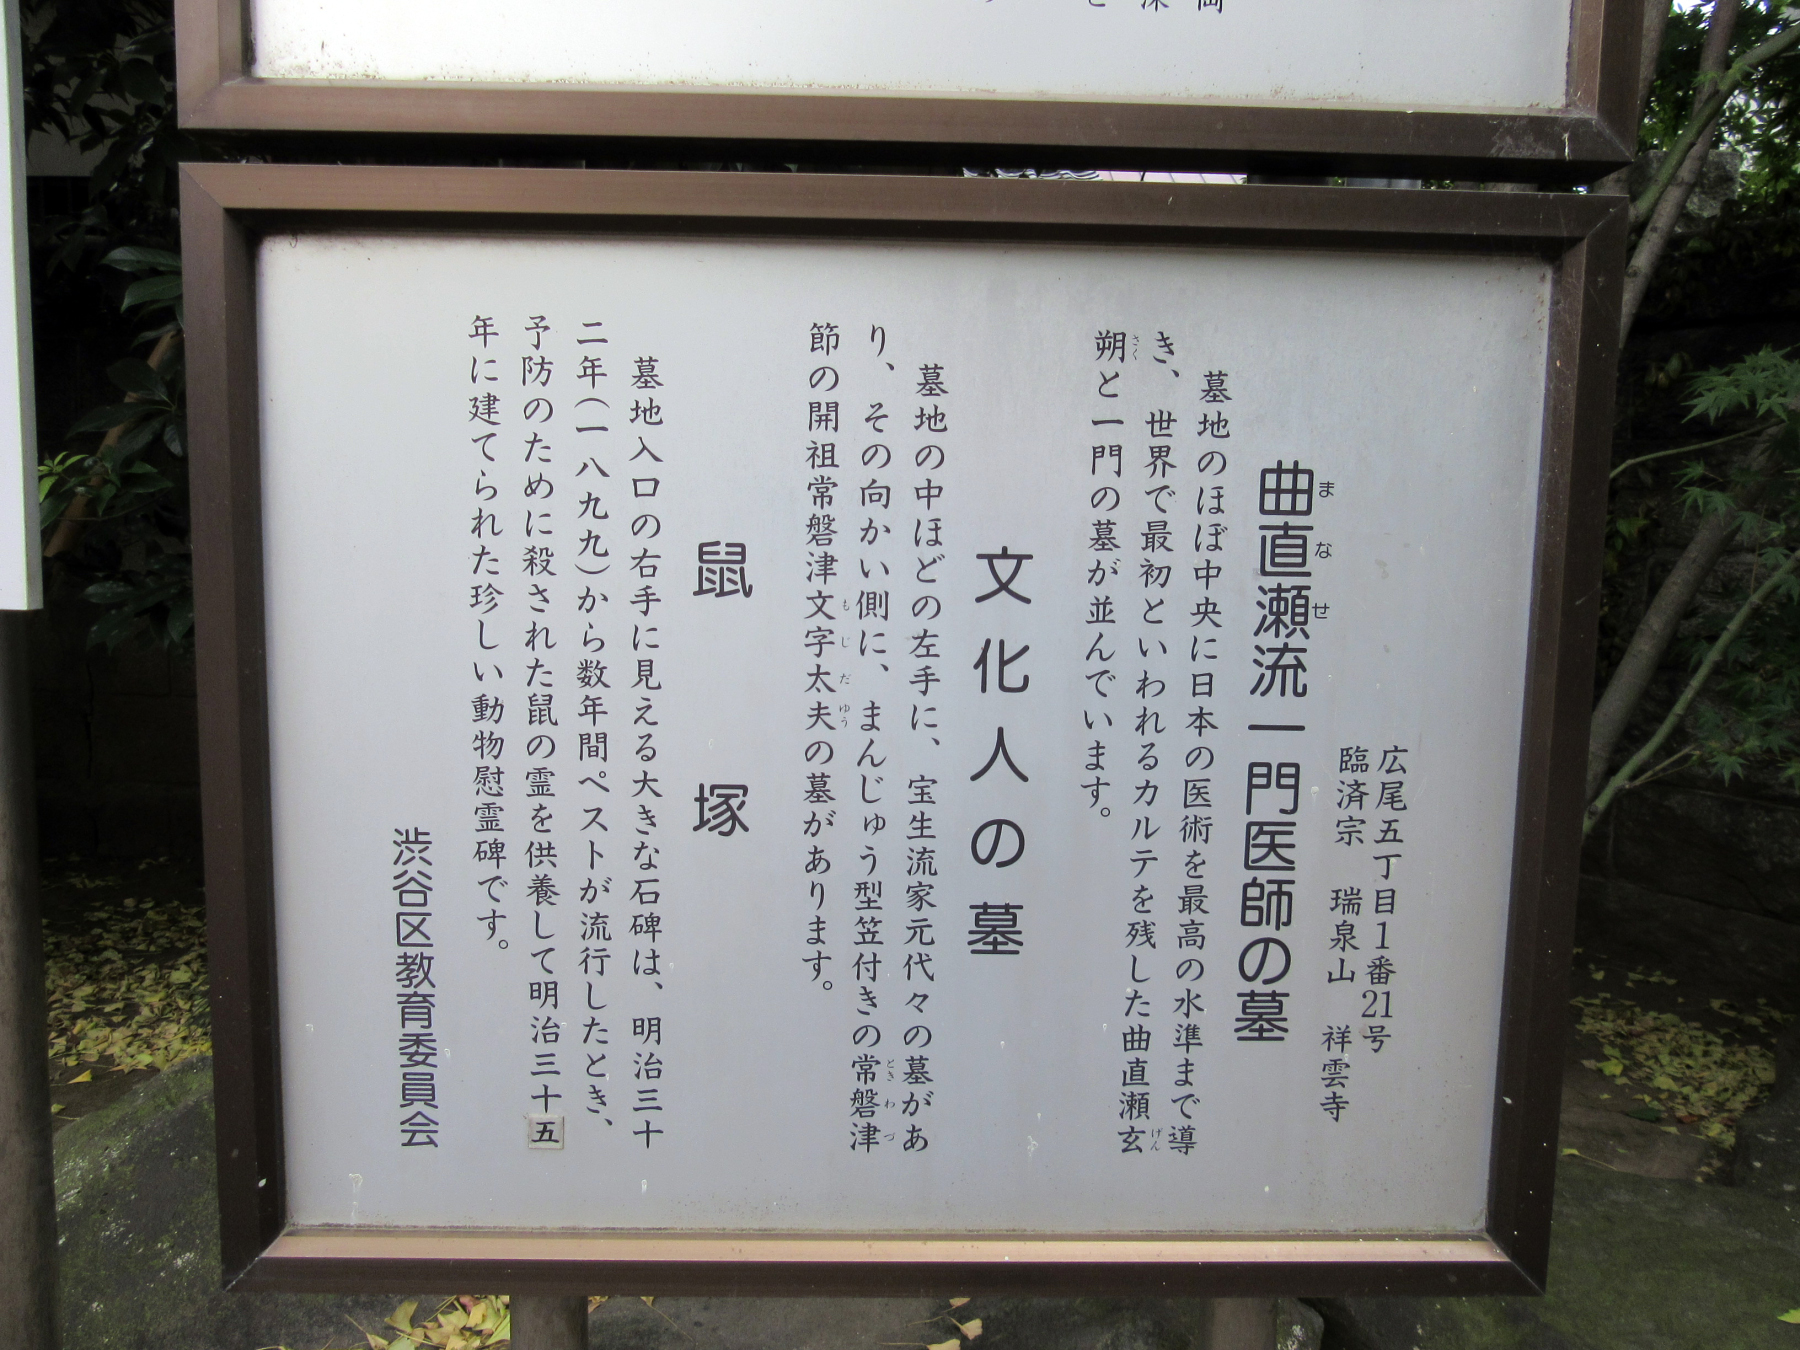 広尾五丁目1番21号
臨済宗 瑞泉山 祥雲寺
曲直瀬流一門医師の墓
まなせ
墓地のほぼ中央に日本の医術を最高の水準まで導
き、世界で最初といわれるカルテを残した曲直瀬玄
げん
朔と一門の墓が並んでいます。
さく
文化人の墓
墓地の中ほどの左手に、宝生流家元代々の墓があ
り、その向かい側に、まんじゅう型笠付きの常磐津
ときわづ
節の開祖常磐津文字太夫の墓があります。
もじだゆう
鼠塚
墓地入口の右手に見える大きな石碑は、明治三十
二年(一八九九)から数年間ペストが流行したとき、
予防のために殺された鼠の霊を供養して明治三十五
年に建てられた珍しい動物慰霊碑です。
渋谷区教育委員会